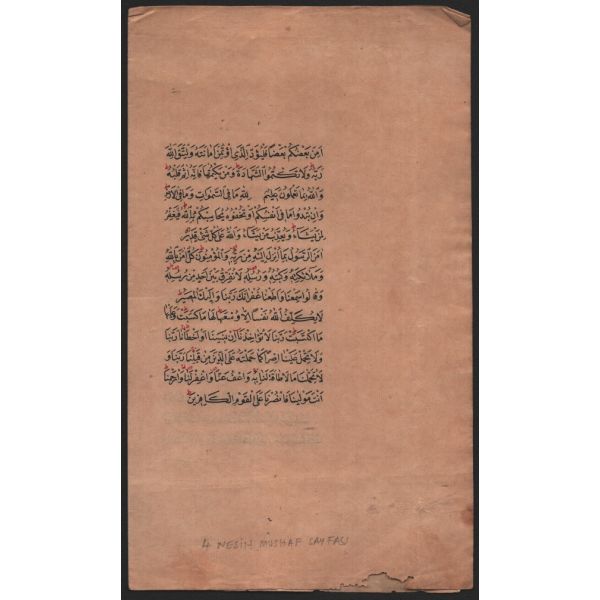 امن بعضكم بعضا فليؤد الذى اؤتمن امانته وليتق الله
ربه ولا تكتموا الشهادة ومن يكتمها فانه اثم قلبه
والله بما تعملون عليم لله ما فى السموات وما فى الارض
وان تبدوا ما فى انفسكم او تخفوه يحاسبكم به الله فيغفر
لمن يشاء ويعذب من يشاء والله على كل شئ قدير
امن الرسول بما انزل اليه من ربه والمؤمنون كل امن بالله
وملائكته وكتبه ورسله لا نفرق بين احد من رسله
وقالوا سمعنا واطعنا غفرانك ربنا واليك المصير
لا يكلف الله نفسا الا وسعها لها ما كسبت وعليها
ما اكتسبت ربنا لا تؤاخذنا ان نسينا او اخطأنا ربنا
ولا تحمل علينا اصرا كما حملته على الذين من قبلنا ربنا و
لا تحملنا ما لا طاقة لنا به واعف عنا واغفر لنا وارحمنا
انت مولينا فانصرنا على القوم الكافرين
4 NESİH MUSHAF SAYFASI